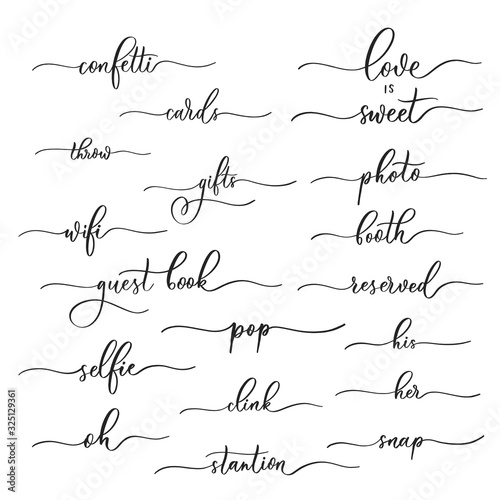 confetti
cards
throw
gifts
wifi
guest book
pop
selfie
clink
oh
stantion
love
is
sweet
photo
booth
reserved
his
her
snap
Adobe Stock | #325129361